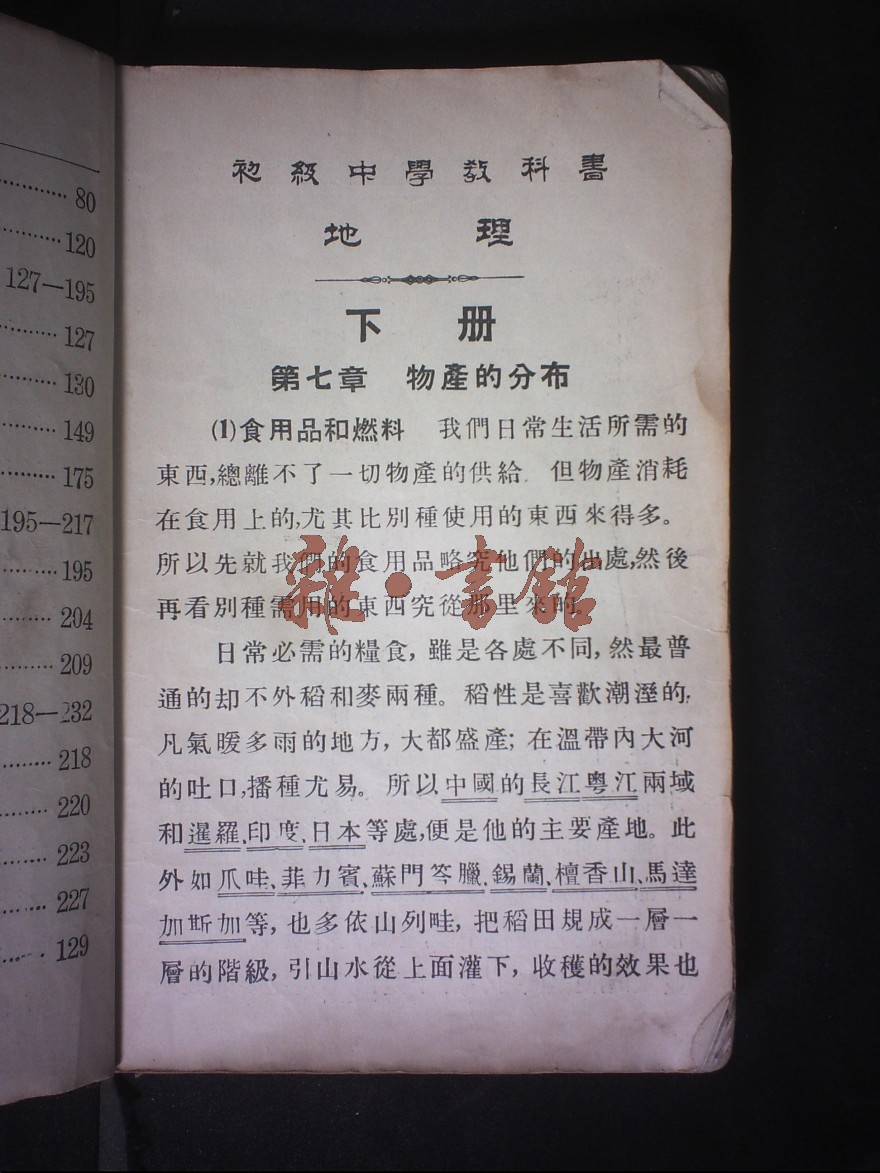 80
120
127—195
127
130
149
175
195—217
195
204
209
218—232
218
220
223
227
129
初級中學教科書
地理
下册
第七章 物產的分布
(1)食用品和燃料 我們日常生活所需的
東西,總離不了一切物產的供給. 但物產消耗
在食用上的,尤其比別種使用的東西來得多。
所以先就我們的食用品略究他們的出處,然後
再看別種需用的東西究從那里來的。
日常必需的糧食, 雖是各處不同, 然最普
通的却不外稻和麥兩種。稻性是喜歡潮溼的;
凡氣暖多雨的地方, 大都盛產; 在溫帶內大河
的吐口,播種尤易。所以中國的長江粵江兩域
和暹羅、印度、日本等處,便是他的主要產地。此
外如爪哇、菲力賓、蘇門答臘、錫蘭、檀香山、馬達
加斯加等, 也多依山列畦, 把稻田規成一層一
層的階級, 引山水從上面灌下, 收穫的效果也
雜·書館